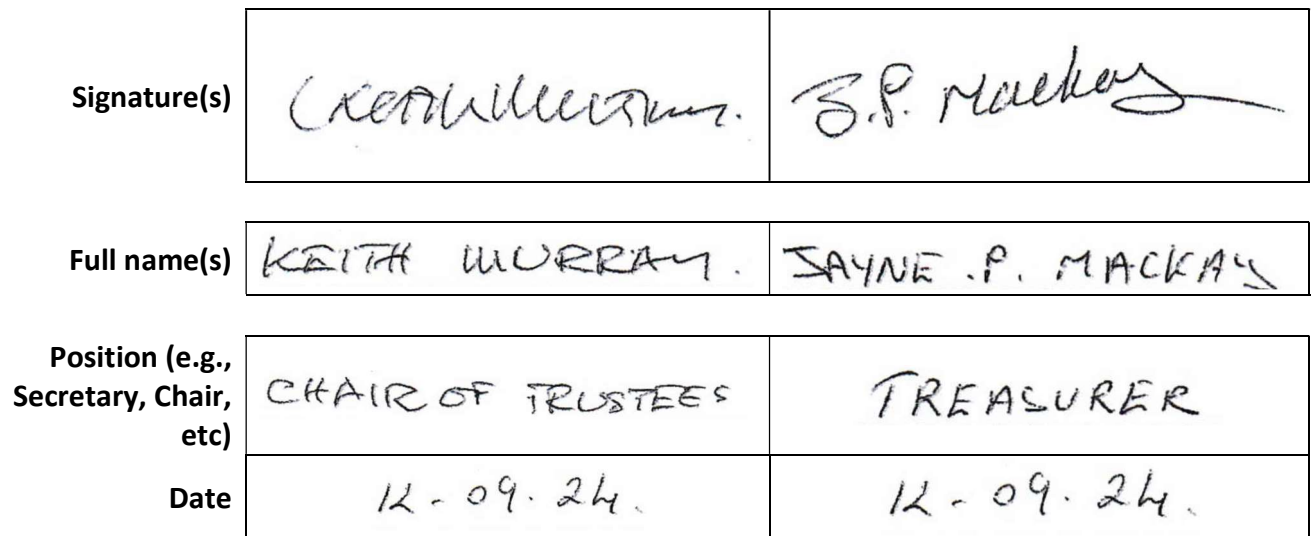 Signature(s) Keith Murray. J.P. Mackay
Full name(s) KEITH MURRAY. JAYNE .P. MACKAY
Position (e.g.,
Secretary, Chair,
etc) CHAIR OF TRUSTEES TREASURER
Date 12-09.24. 12-09.24.